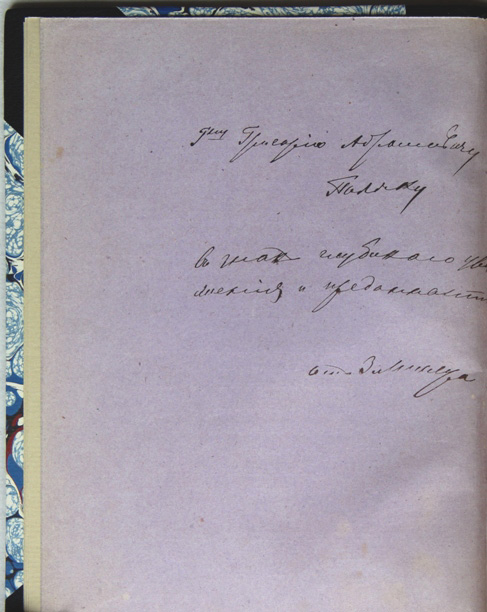 Дну Григорію Абрамовичу
Поляку
въ знакъ глубокаго ува
женія и преданност
отъ Зингера